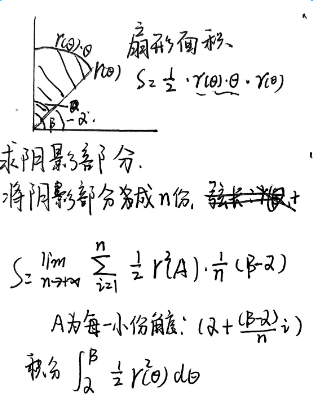 r(θ)·θ
扇形面积
r(θ)
S=1/2·r(θ)·θ·r(θ)
α
β
-α
求阴影部分.
将阴影部分分成n份,
S=lim n→+∞ ∑ i=1 n 1/2 r²(A)·1/n(β-α)
A为每一小份角度:(α+(β-α)/n i)
积分∫α β 1/2 r²(θ)dθ